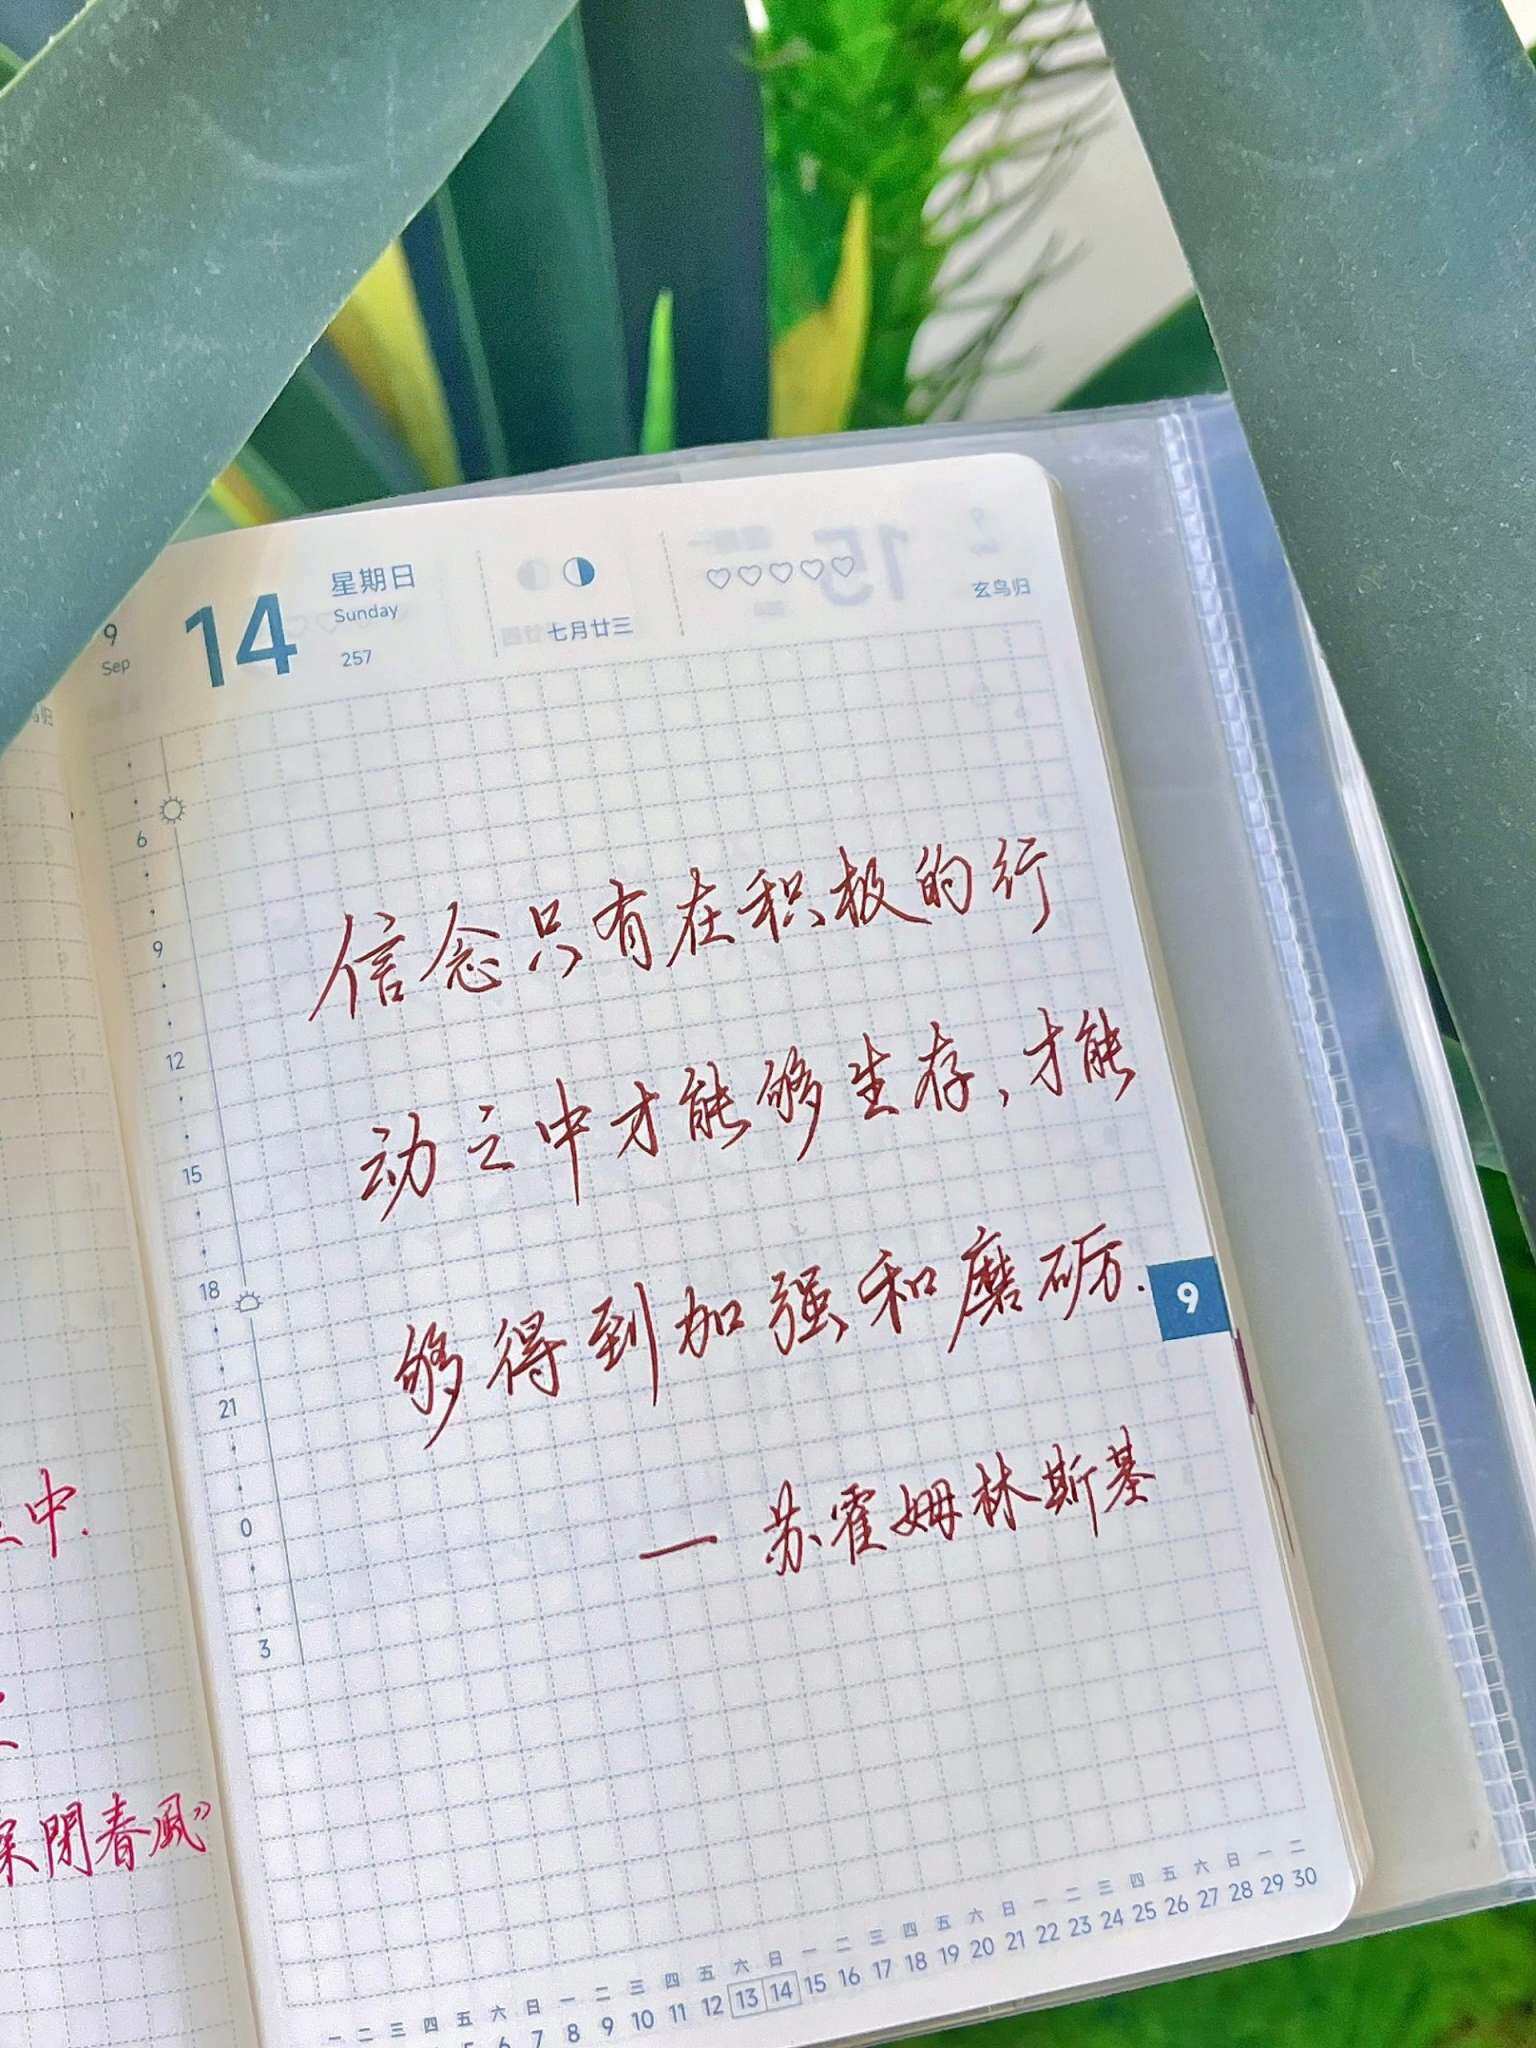 9
Sep
14
星期日
Sunday
257
七月廿三
玄鸟归
6
9
12
15
18
21
0
3
信念只有在积极的行
动之中才能够生存、才能
够得到加强和磨砺.
一 苏霍姆林斯基
9
中.
閉春風”
一 二 三 四 五 六 日 一 二 三 四 五 六 日 一 二 三 四 五 六 日 一 二 三 四 五 六 日 一 二
5 6 7 8 9 10 11 12 13 14 15 16 17 18 19 20 21 22 23 24 25 26 27 28 29 30